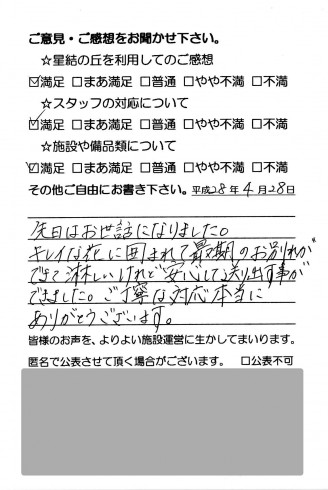 ご意見・ご感想をお聞かせ下さい。
☆星結の丘を利用してのご感想
☑満足 □まあ満足 □普通 □やや不満 □不満
☆スタッフの対応について
☑満足 □まあ満足 □普通 □やや不満 □不満
☆施設や備品類について
☑満足 □まあ満足 □普通 □やや不満 □不満
その他ご自由にお書き下さい。平成28年4月28日
先日はお世話になりました。
キレイな花に囲まれて最期のお別れが
できて淋しいけれど安心して送り出す事が
できました。ご丁寧な対応本当に
ありがとうございます。
皆様のお声を、よりよい施設運営に生かしてまいります。
匿名で公表させて頂く場合がございます。 □公表不可